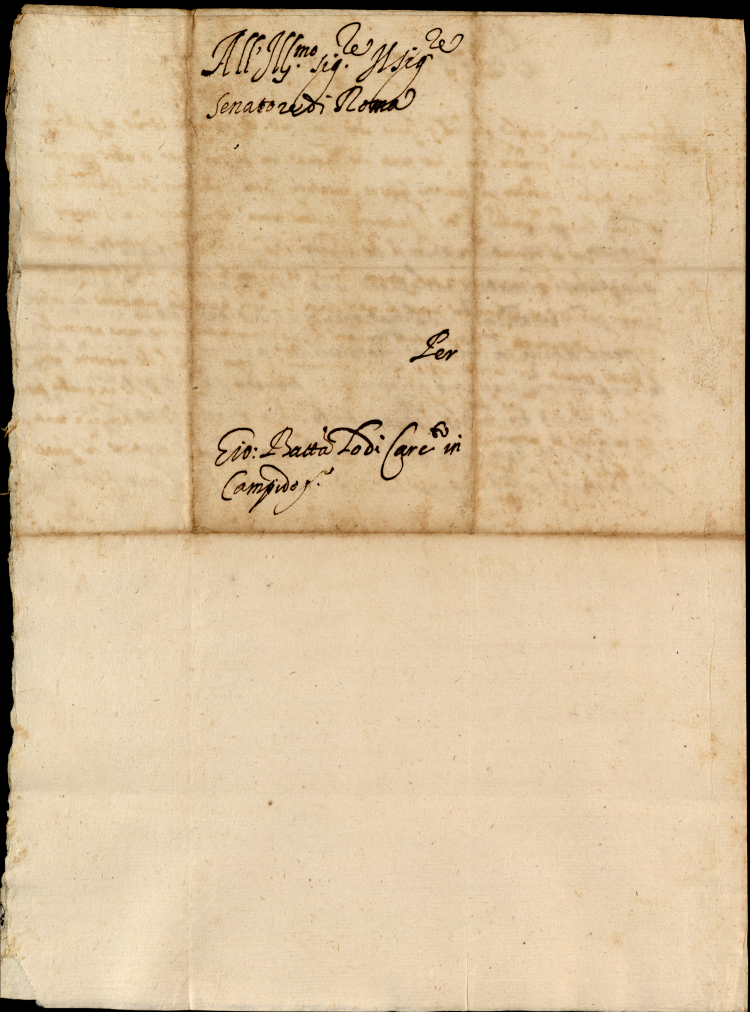 All'Ill.mo Sig.re Il Sig.re
Senatore di Roma
Per
Gio: Batta Lodi Carc.to in
Campido.